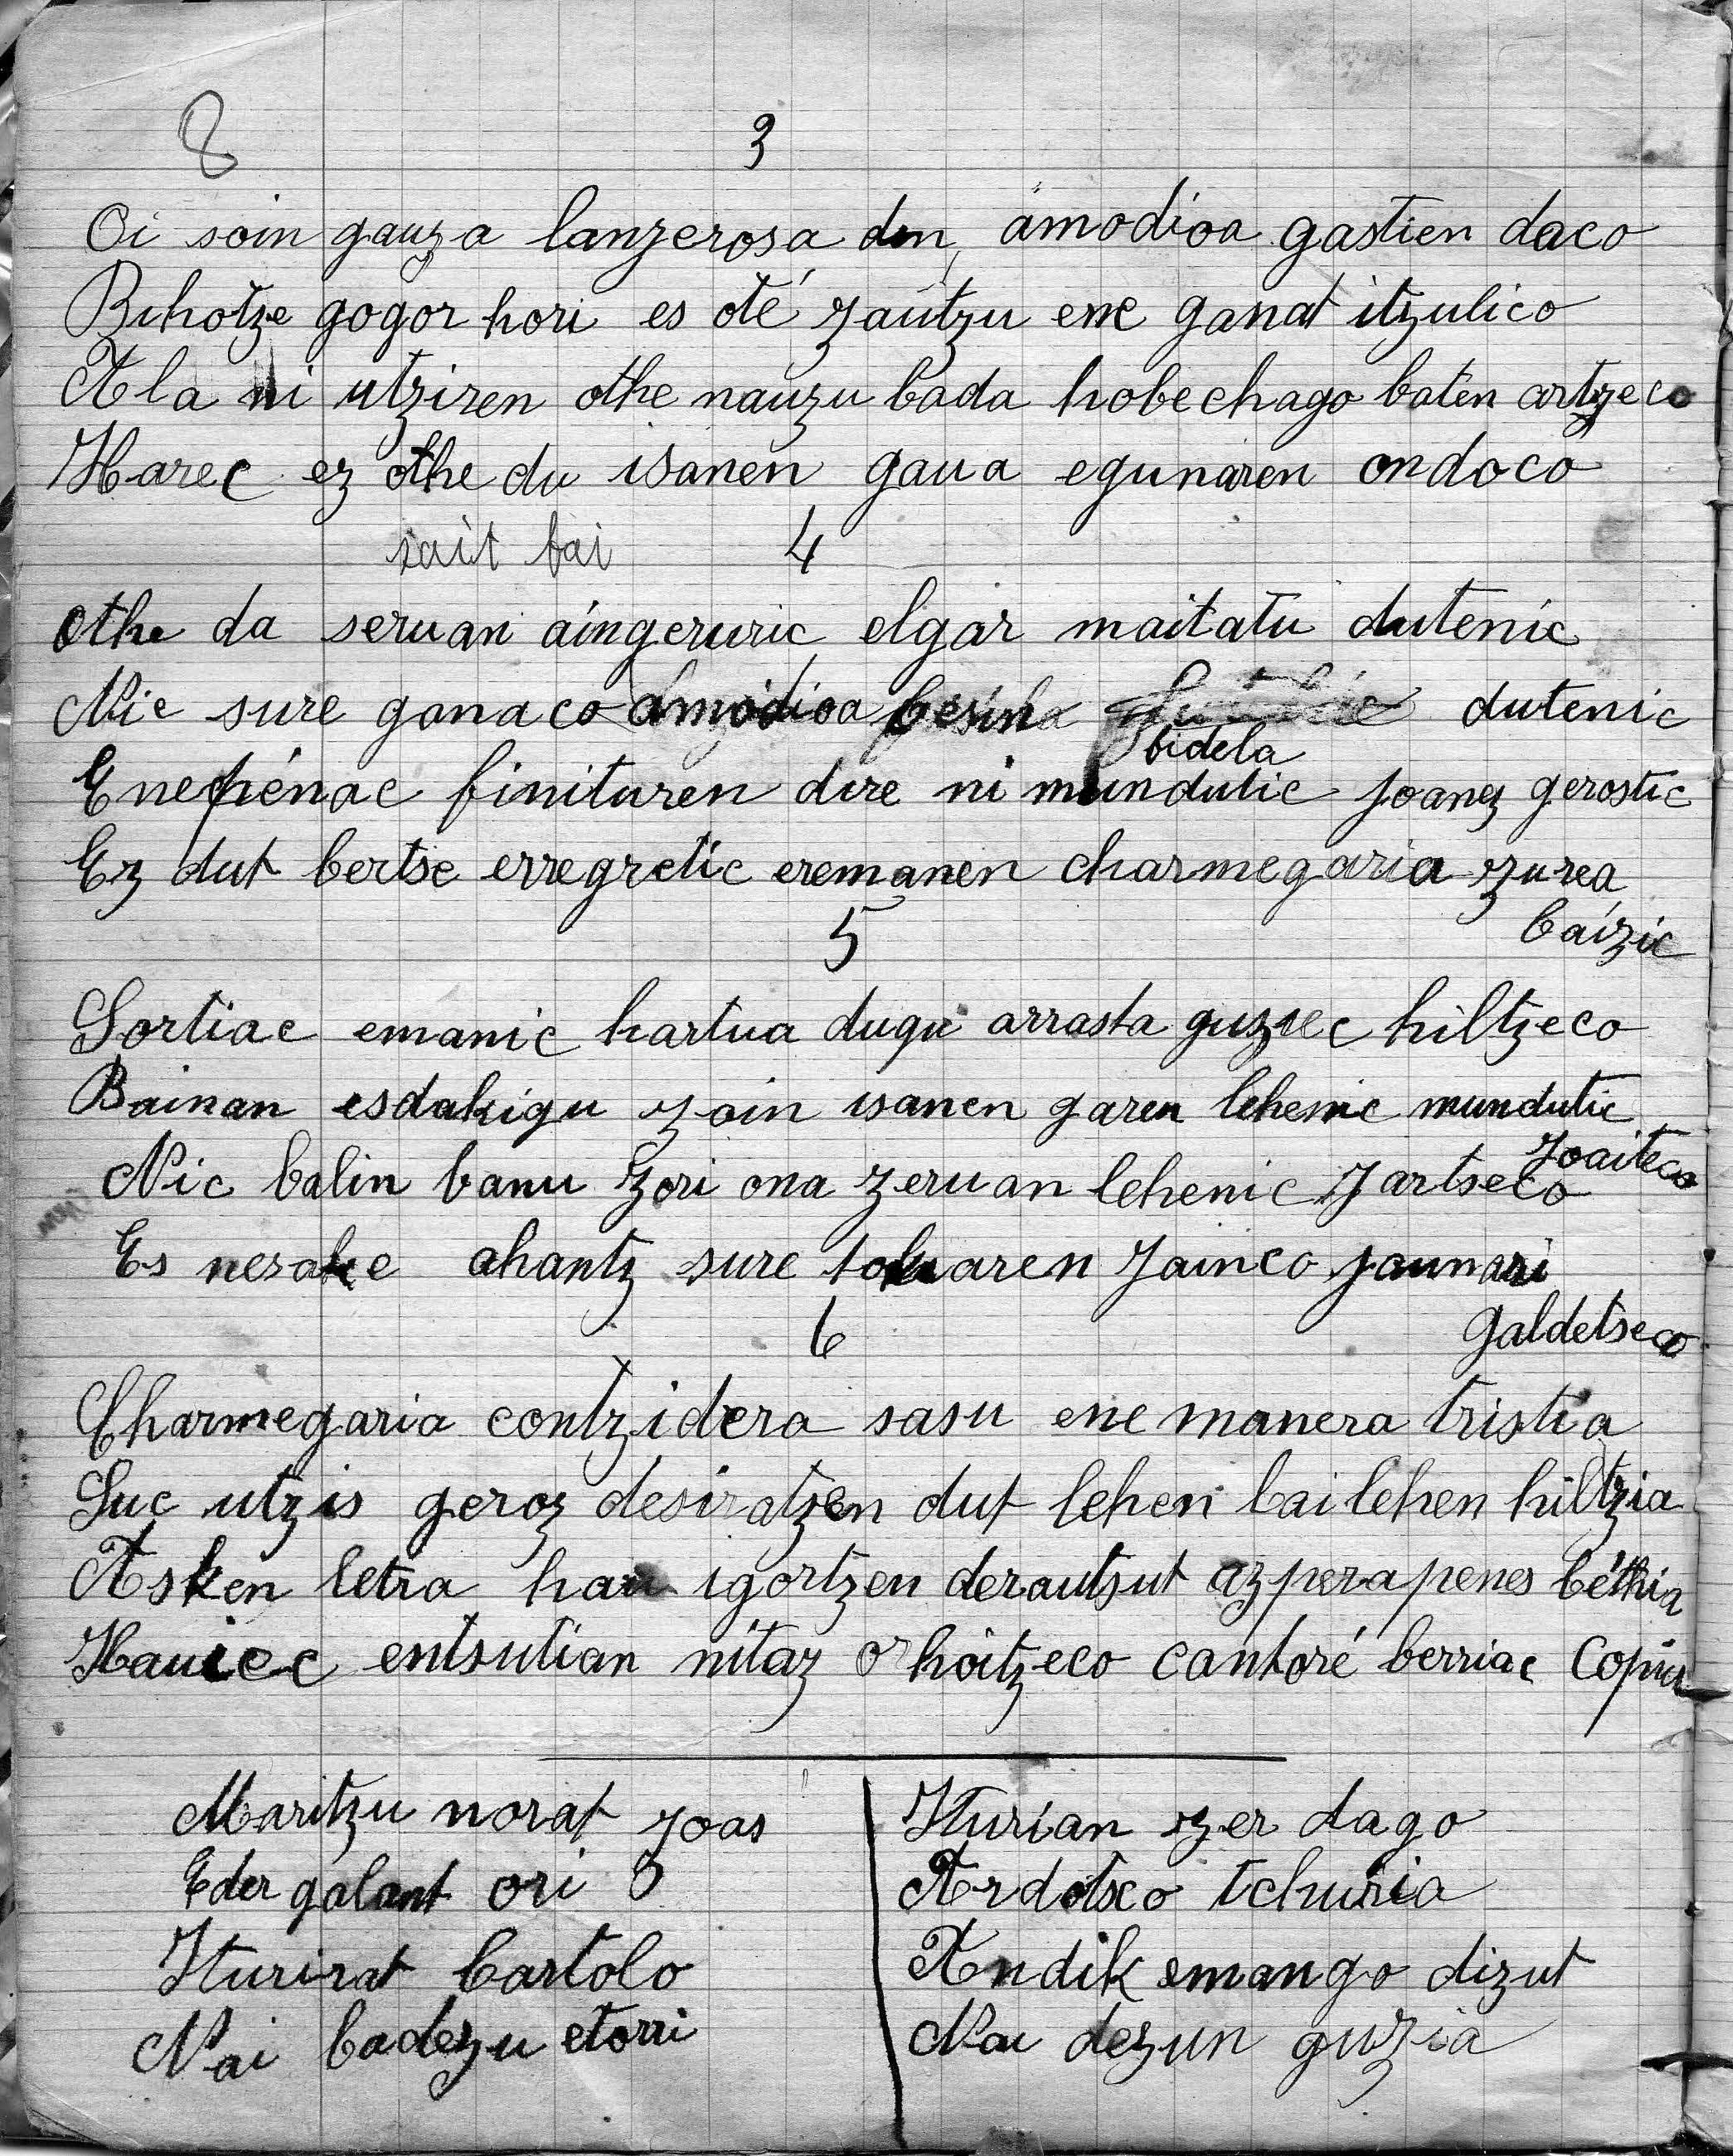 8 3
Oi soin gauza lanzerosa den, amodioa gastien daco
Bihotze gogor hori es oté zautzu ene ganat itzulico
Ala ni utziren othe nauzu bada hobechago baten artzeco
Harec ez othe du isanen gaua egunaren ondoco
sait bai 4
othe da seruan aingeruric elgar maitatu dutenic
Nic sure ganaco amodioa besin dutenic
bidela
Ene pénac finituren dire ni mundutic joanez gerostic
Ez dut bertse erregretic eremanen charmegaria zurea
baizic
5
Sortiac emanic hartua dugu arrasta guziec hiltzeco
Bainan esdakigu zoin isanen garen lehenic mundutic
joaiteco
Nic balin banu zori ona zeruan lehenic jartseco
Es nesake ahantz sure tokiaren Jainco jaunari
galdetseco
6
Charmegaria contzidera sasu ene manera tristia
Suc utzis geroz desiratzen dut lehen bai lehen hiltzia
Asken letra hau igortzen derautsut azpera penes béthia
Hauiec entsutian nitaz orhoitzeco cantoré berriac
Maritzu norat joas
Eder galant ori
Iturirat bartolo
Nai badezu etorri
Iturian zer dago
Ardotsco tchuria
Andik emango dizut
Nai dezun guzia